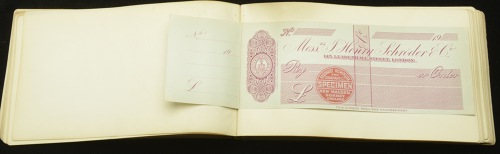 No
19
£
No 19
Messrs J. Henry Schroder & Co.
145, LEADENHALL STREET, LONDON.
Pay
or Order
£
SPECIMEN
NEW MALDEN
SURREY